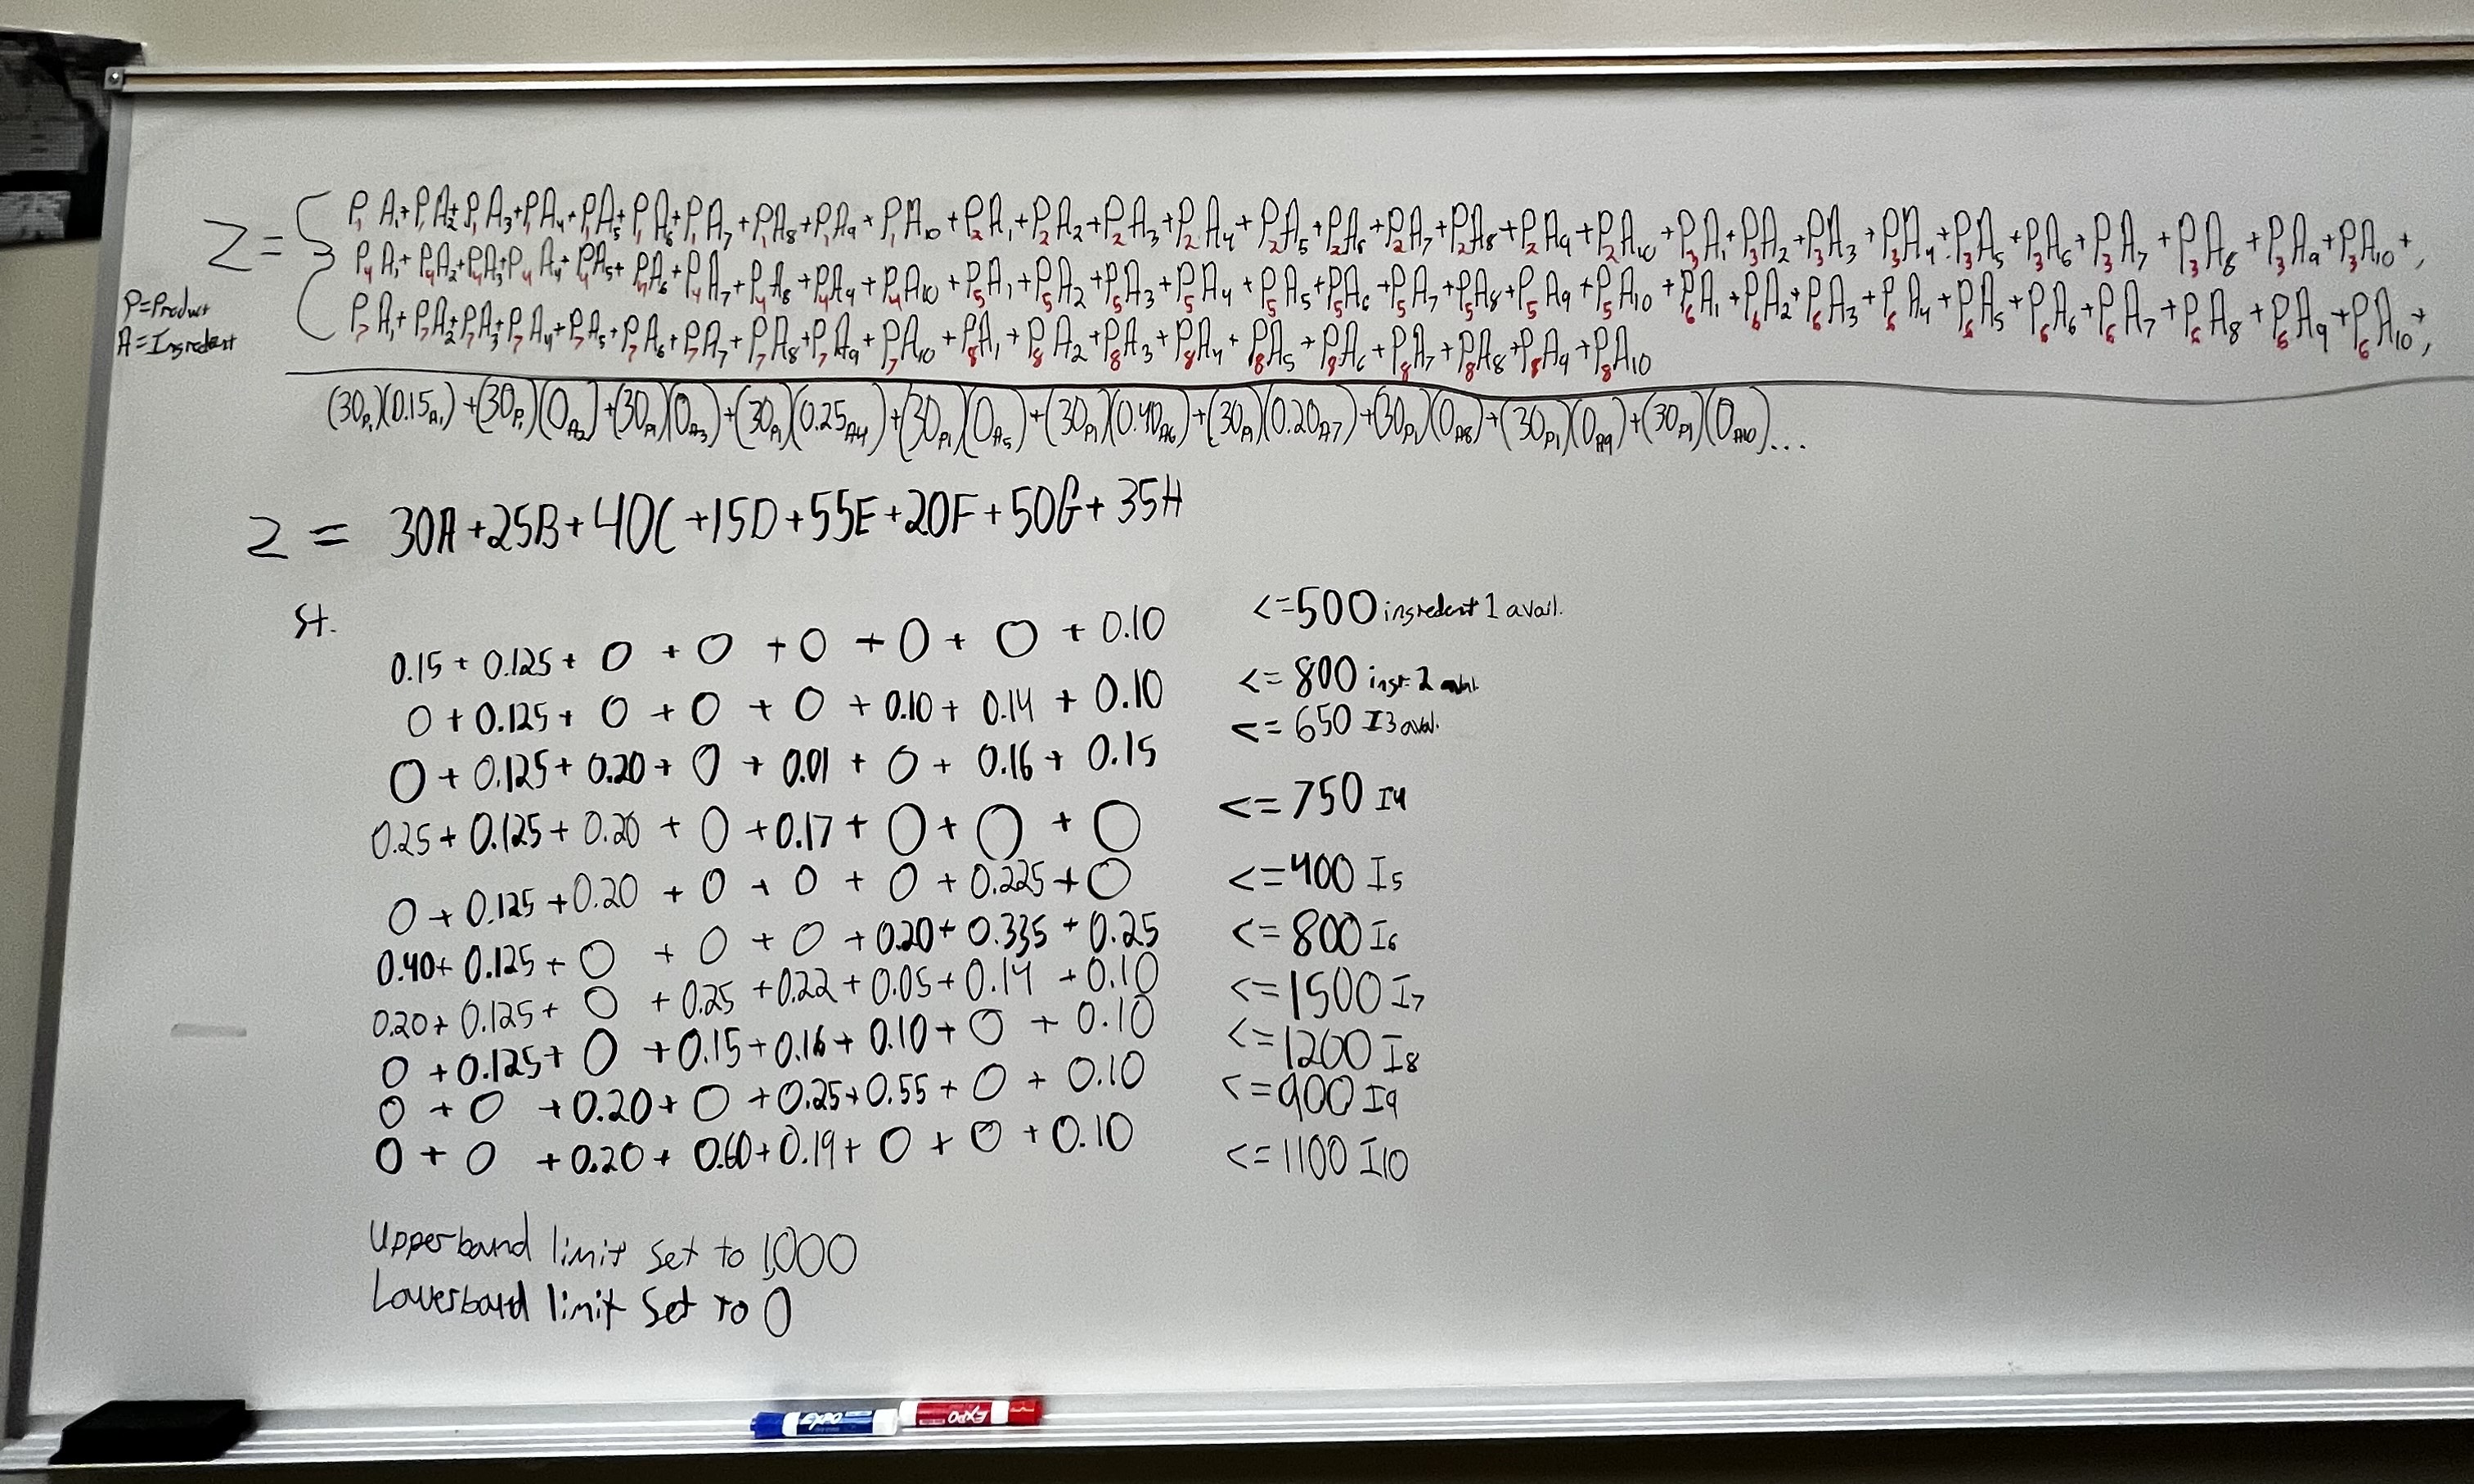 Z = { P₁A₁+P₁A₂+P₁A₃+P₁A₄+P₁A₅+P₁A₆+P₁A₇+P₁A₈+P₁A₉+P₁A₁₀+P₂A₁+P₂A₂+P₂A₃+P₂A₄+P₂A₅+P₂A₆+P₂A₇+P₂A₈+P₂A₉+P₂A₁₀+P₃A₁+P₃A₂+P₃A₃+P₃A₄+P₃A₅+P₃A₆+P₃A₇+P₃A₈+P₃A₉+P₃A₁₀+,
P₄A₁+P₄A₂+P₄A₃+P₄A₄+P₄A₅+P₄A₆+P₄A₇+P₄A₈+P₄A₉+P₄A₁₀+P₅A₁+P₅A₂+P₅A₃+P₅A₄+P₅A₅+P₅A₆+P₅A₇+P₅A₈+P₅A₉+P₅A₁₀+P₆A₁+P₆A₂+P₆A₃+P₆A₄+P₆A₅+P₆A₆+P₆A₇+P₆A₈+P₆A₉+P₆A₁₀+,
P₇A₁+P₇A₂+P₇A₃+P₇A₄+P₇A₅+P₇A₆+P₇A₇+P₇A₈+P₇A₉+P₇A₁₀+P₈A₁+P₈A₂+P₈A₃+P₈A₄+P₈A₅+P₈A₆+P₈A₇+P₈A₈+P₈A₉+P₈A₁₀
P=Product
A=Ingredent
(30P₁)(0.15A₁)+(30P₁)(0A2)+(30P1)(0A3)+(30P1)(0.25A4)+(30P1)(0A5)+(30P1)(0.40A6)+(30P1)(0.20A7)+(30P1)(0A8)+(30P1)(0A9)+(30P1)(0A10)...
Z = 30A+25B+40C+15D+55E+20F+50G+35H
St.
0.15 + 0.125 + 0 + 0 + 0 + 0 + 0 + 0.10 <=500 ingredent 1 avail.
0 + 0.125 + 0 + 0 + 0 + 0.10 + 0.14 + 0.10 <= 800 ingr. 2 aval.
0 + 0.125 + 0.20 + 0 + 0.01 + 0 + 0.16 + 0.15 <= 650 I3 aval.
0.25 + 0.125 + 0.20 + 0 + 0.17 + 0 + 0 + 0 <= 750 I4
0 + 0.125 + 0.20 + 0 + 0 + 0 + 0.225 + 0 <=400 I5
0.40 + 0.125 + 0 + 0 + 0 + 0.20 + 0.335 + 0.25 <= 800 I6
0.20 + 0.125 + 0 + 0.25 + 0.22 + 0.05 + 0.14 + 0.10 <=1500 I7
0 + 0.125 + 0 + 0.15 + 0.16 + 0.10 + 0 + 0.10 <=1200 I8
0 + 0 + 0.20 + 0 + 0.25 + 0.55 + 0 + 0.10 <=900 I9
0 + 0 + 0.20 + 0.60 + 0.19 + 0 + 0 + 0.10 <=1100 I10
Upperbound limit Set to 1,000
Lowerbound limit Set to 0
EXPO
EXPO